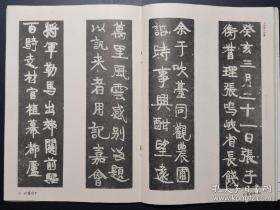 癸亥三月二十一日張子
衡省理張鳴岐省長餞
余于吹臺同觀農圃
時事興酣望遠
萬里風雲感別題
以訊來者用記嘉會
將軍勒馬出郊關前驅
百騎支材官植幕都盧